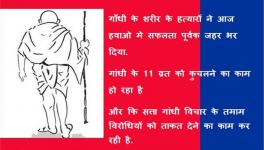 गाँधी के शरीर के हत्यारों ने आज
हवाओ मे सफलता पूर्वक जहर भर
दिया.
गांधी के 11 व्रत को कुचलने का काम
हो रहा है
और कि सत्ता गांधी विचार के तमाम
विरोधियों को ताकत देने का काम कर
रही है.